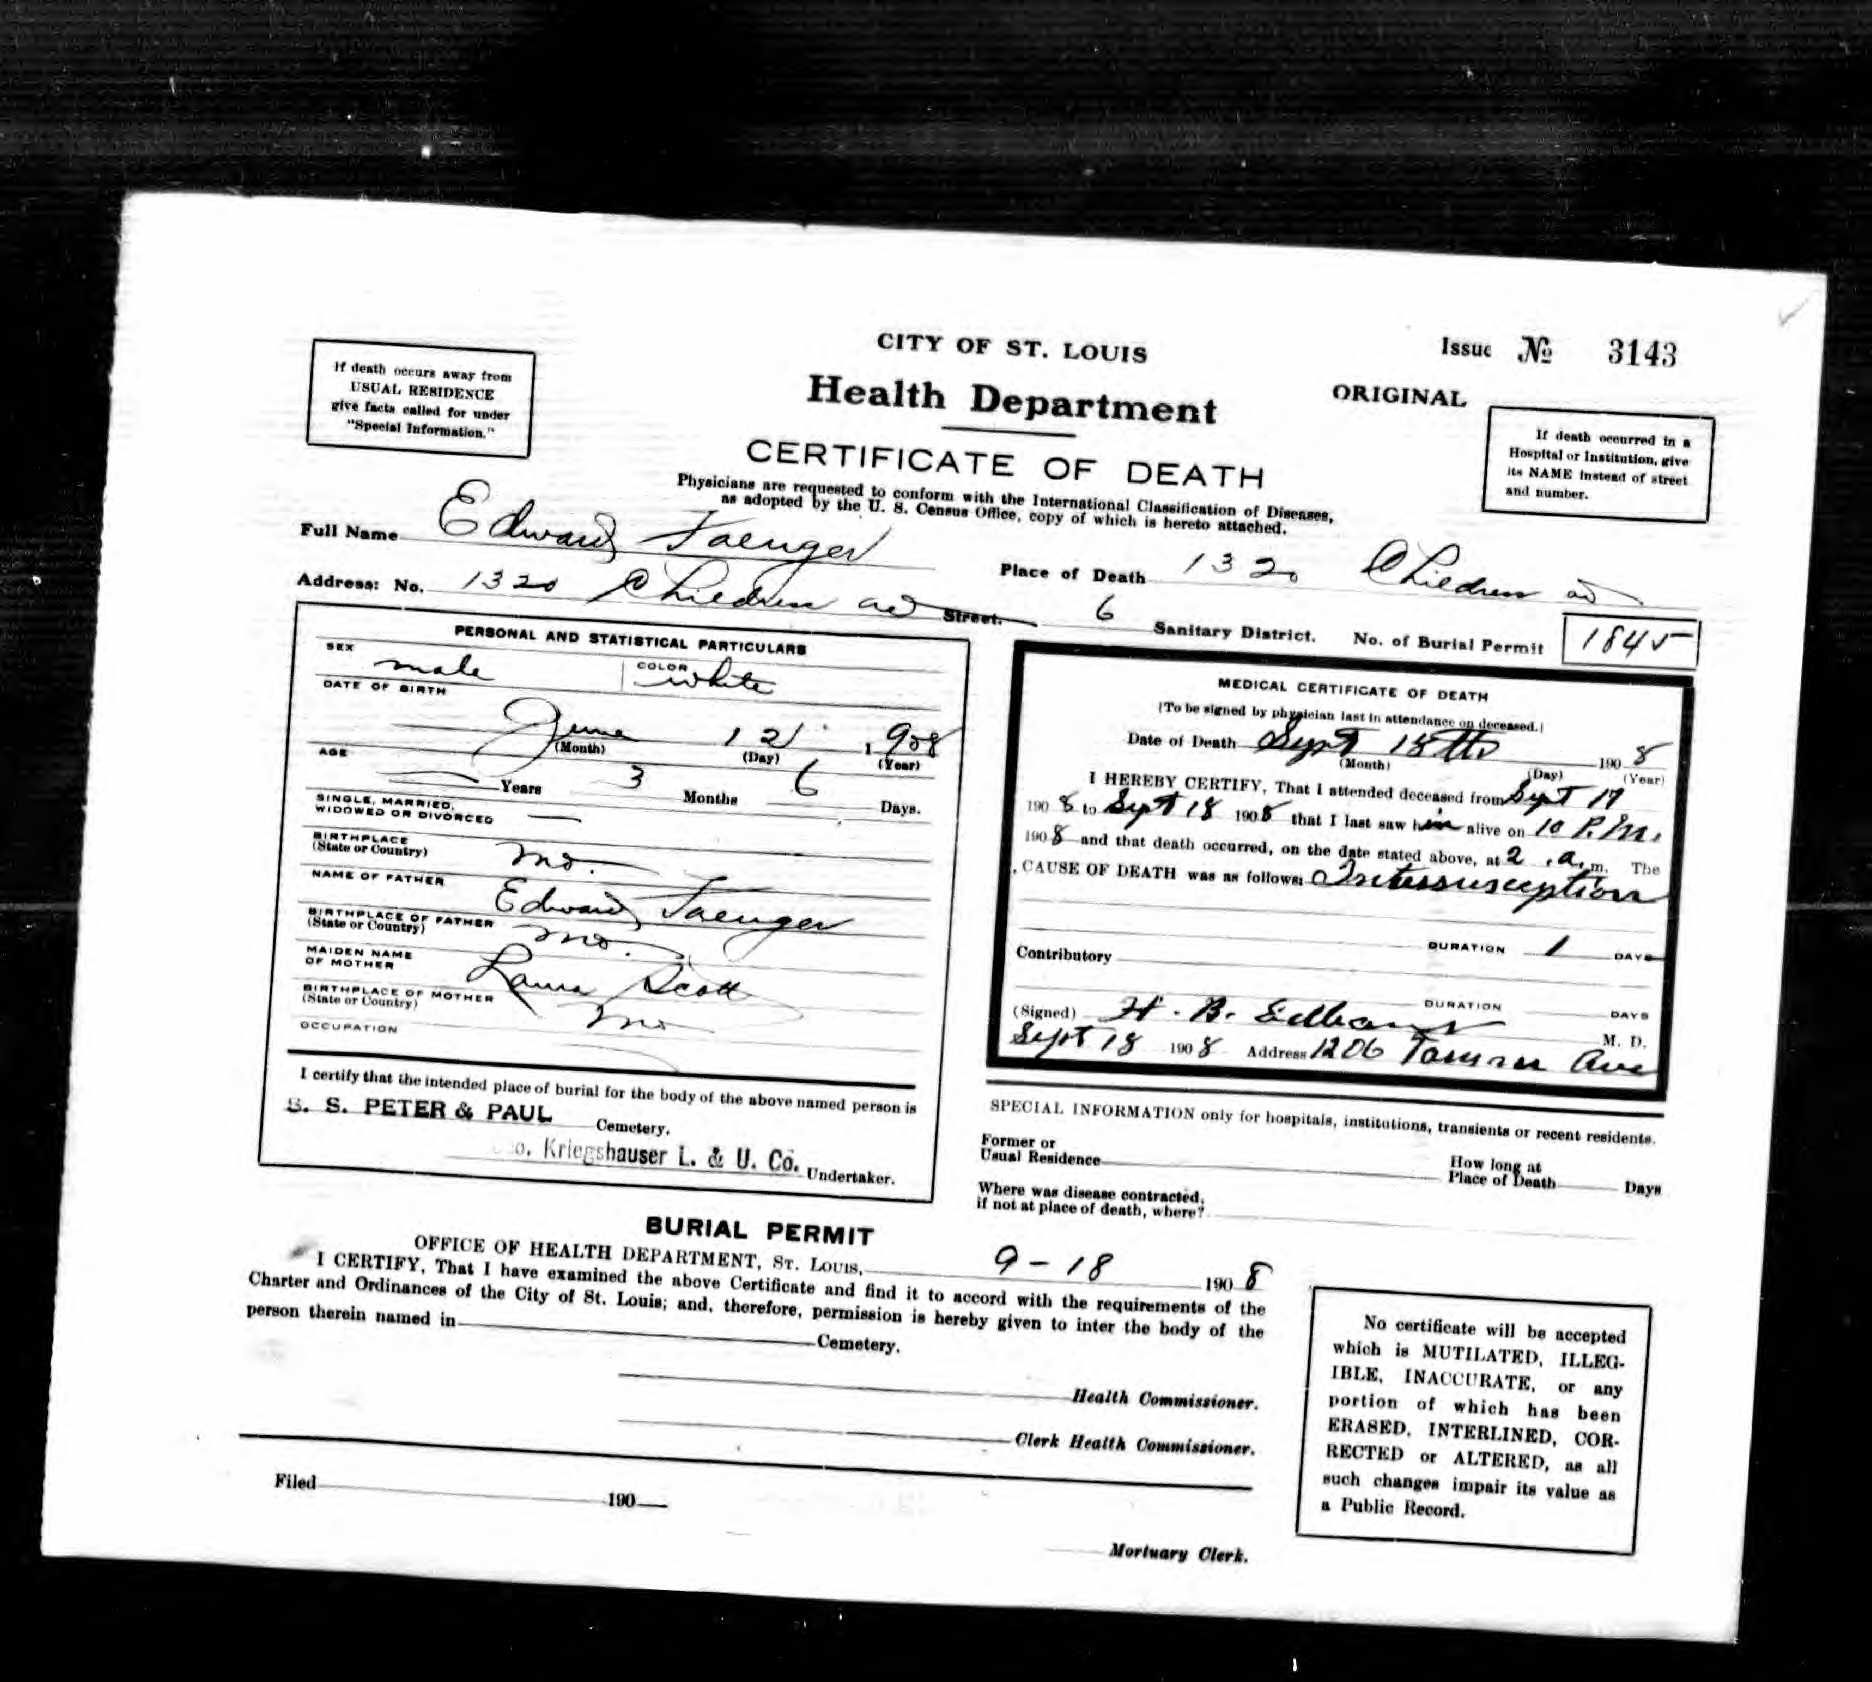 CITY OF ST. LOUIS
Issue No 3143
Health Department
ORIGINAL
If death occurs away from
USUAL RESIDENCE
give facts called for under
"Special Information."
If death occurred in a
Hospital or Institution, give
its NAME instead of street
and number.
CERTIFICATE OF DEATH
Physicians are requested to conform with the International Classification of Diseases,
as adopted by the U. S. Census Office, copy of which is hereto attached.
Full Name Edward Jaenger Place of Death 1320 Childress av
Address: No. 1320 Childress av Street. 6 Sanitary District. No. of Burial Permit 1845
PERSONAL AND STATISTICAL PARTICULARS
SEX male COLOR white
DATE OF BIRTH
June 12 1908
(Month) (Day) (Year)
AGE
Years 3 Months 6 Days.
SINGLE, MARRIED,
WIDOWED OR DIVORCED
BIRTHPLACE
(State or Country) Mo.
NAME OF FATHER Edward Jaenger
BIRTHPLACE OF FATHER
(State or Country) Mo.
MAIDEN NAME
OF MOTHER Laura Scott
BIRTHPLACE OF MOTHER
(State or Country) Mo
OCCUPATION
I certify that the intended place of burial for the body of the above named person is
S. S. PETER & PAUL Cemetery.
Kriegshauser L. & U. Co. Undertaker.
MEDICAL CERTIFICATE OF DEATH
[To be signed by physician last in attendance on deceased.]
Date of Death Sept 18th 1908
(Month) (Day) (Year)
I HEREBY CERTIFY, That I attended deceased from Sept 17
1908 to Sept 18 1908 that I last saw him alive on 10 P.M.
1908 and that death occurred, on the date stated above, at 2 a.m. The
CAUSE OF DEATH was as follows: Intussusception
DURATION 1 DAYS
Contributory
DURATION DAYS
(Signed) H. B. M. D.
Sept 18 1908 Address 1206 Tamm Ave
SPECIAL INFORMATION only for hospitals, institutions, transients or recent residents.
Former or
Usual Residence
How long at
Place of Death Days
Where was disease contracted,
if not at place of death, where?
BURIAL PERMIT
OFFICE OF HEALTH DEPARTMENT, ST. LOUIS, 9-18 1908
I CERTIFY, That I have examined the above Certificate and find it to accord with the requirements of the
Charter and Ordinances of the City of St. Louis; and, therefore, permission is hereby given to inter the body of the
person therein named in Cemetery.
Health Commissioner.
Clerk Health Commissioner.
Filed 190
Mortuary Clerk.
No certificate will be accepted
which is MUTILATED, ILLEG-
IBLE, INACCURATE, or any
portion of which has been
ERASED, INTERLINED, COR-
RECTED or ALTERED, as all
such changes impair its value as
a Public Record.